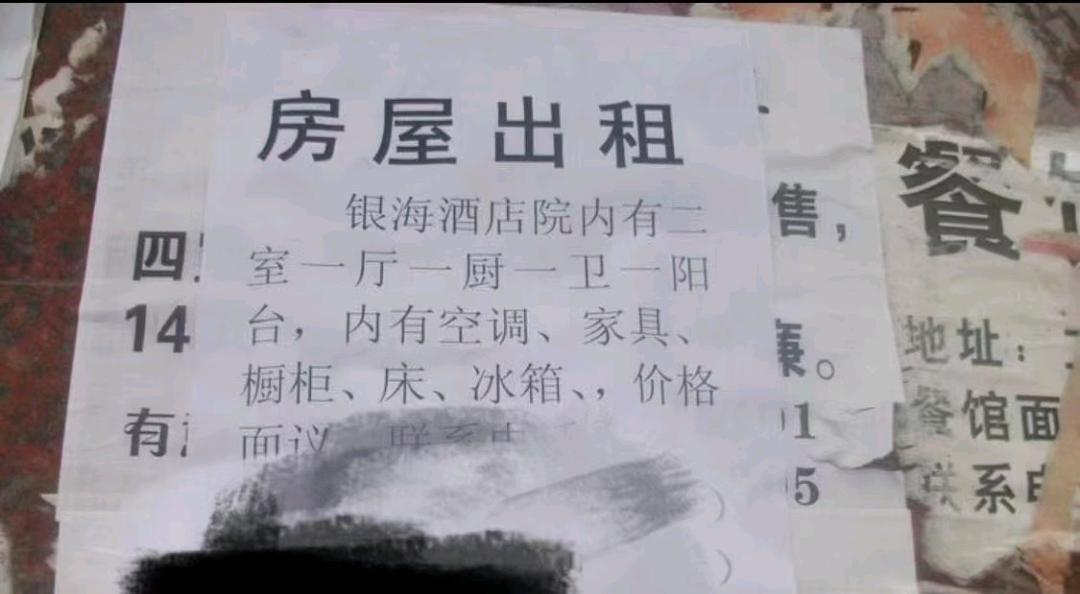 房屋出租
银海酒店院内有二
室一厅一厨一卫一阳
台，内有空调、家具、
橱柜、床、冰箱、，价格
面议
四
14
有
售，
。
01
05
餐
地址：
餐馆面
联系电